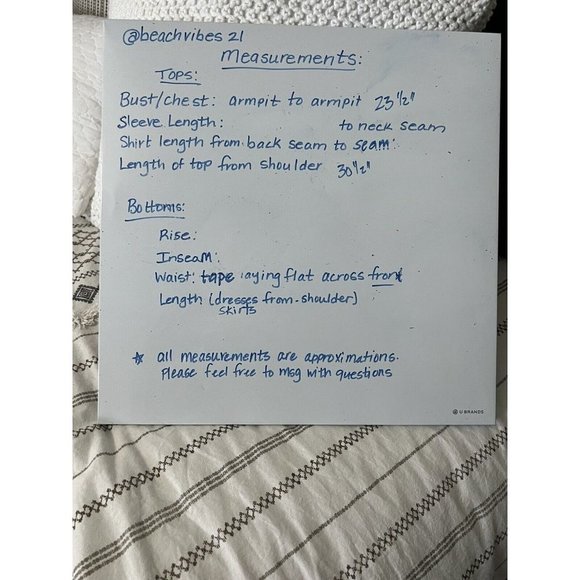 @beachvibes 21
Measurements:
Tops:
Bust/chest: armpit to armpit 23 1/2"
Sleeve Length: to neck seam
Shirt length from back seam to seam:
Length of top from shoulder 30 1/2"
Bottoms:
Rise:
Inseam:
Waist: tape laying flat across front
Length (dresses from shoulder)
skirts
* all measurements are approximations.
Please feel free to msg with questions
U BRANDS